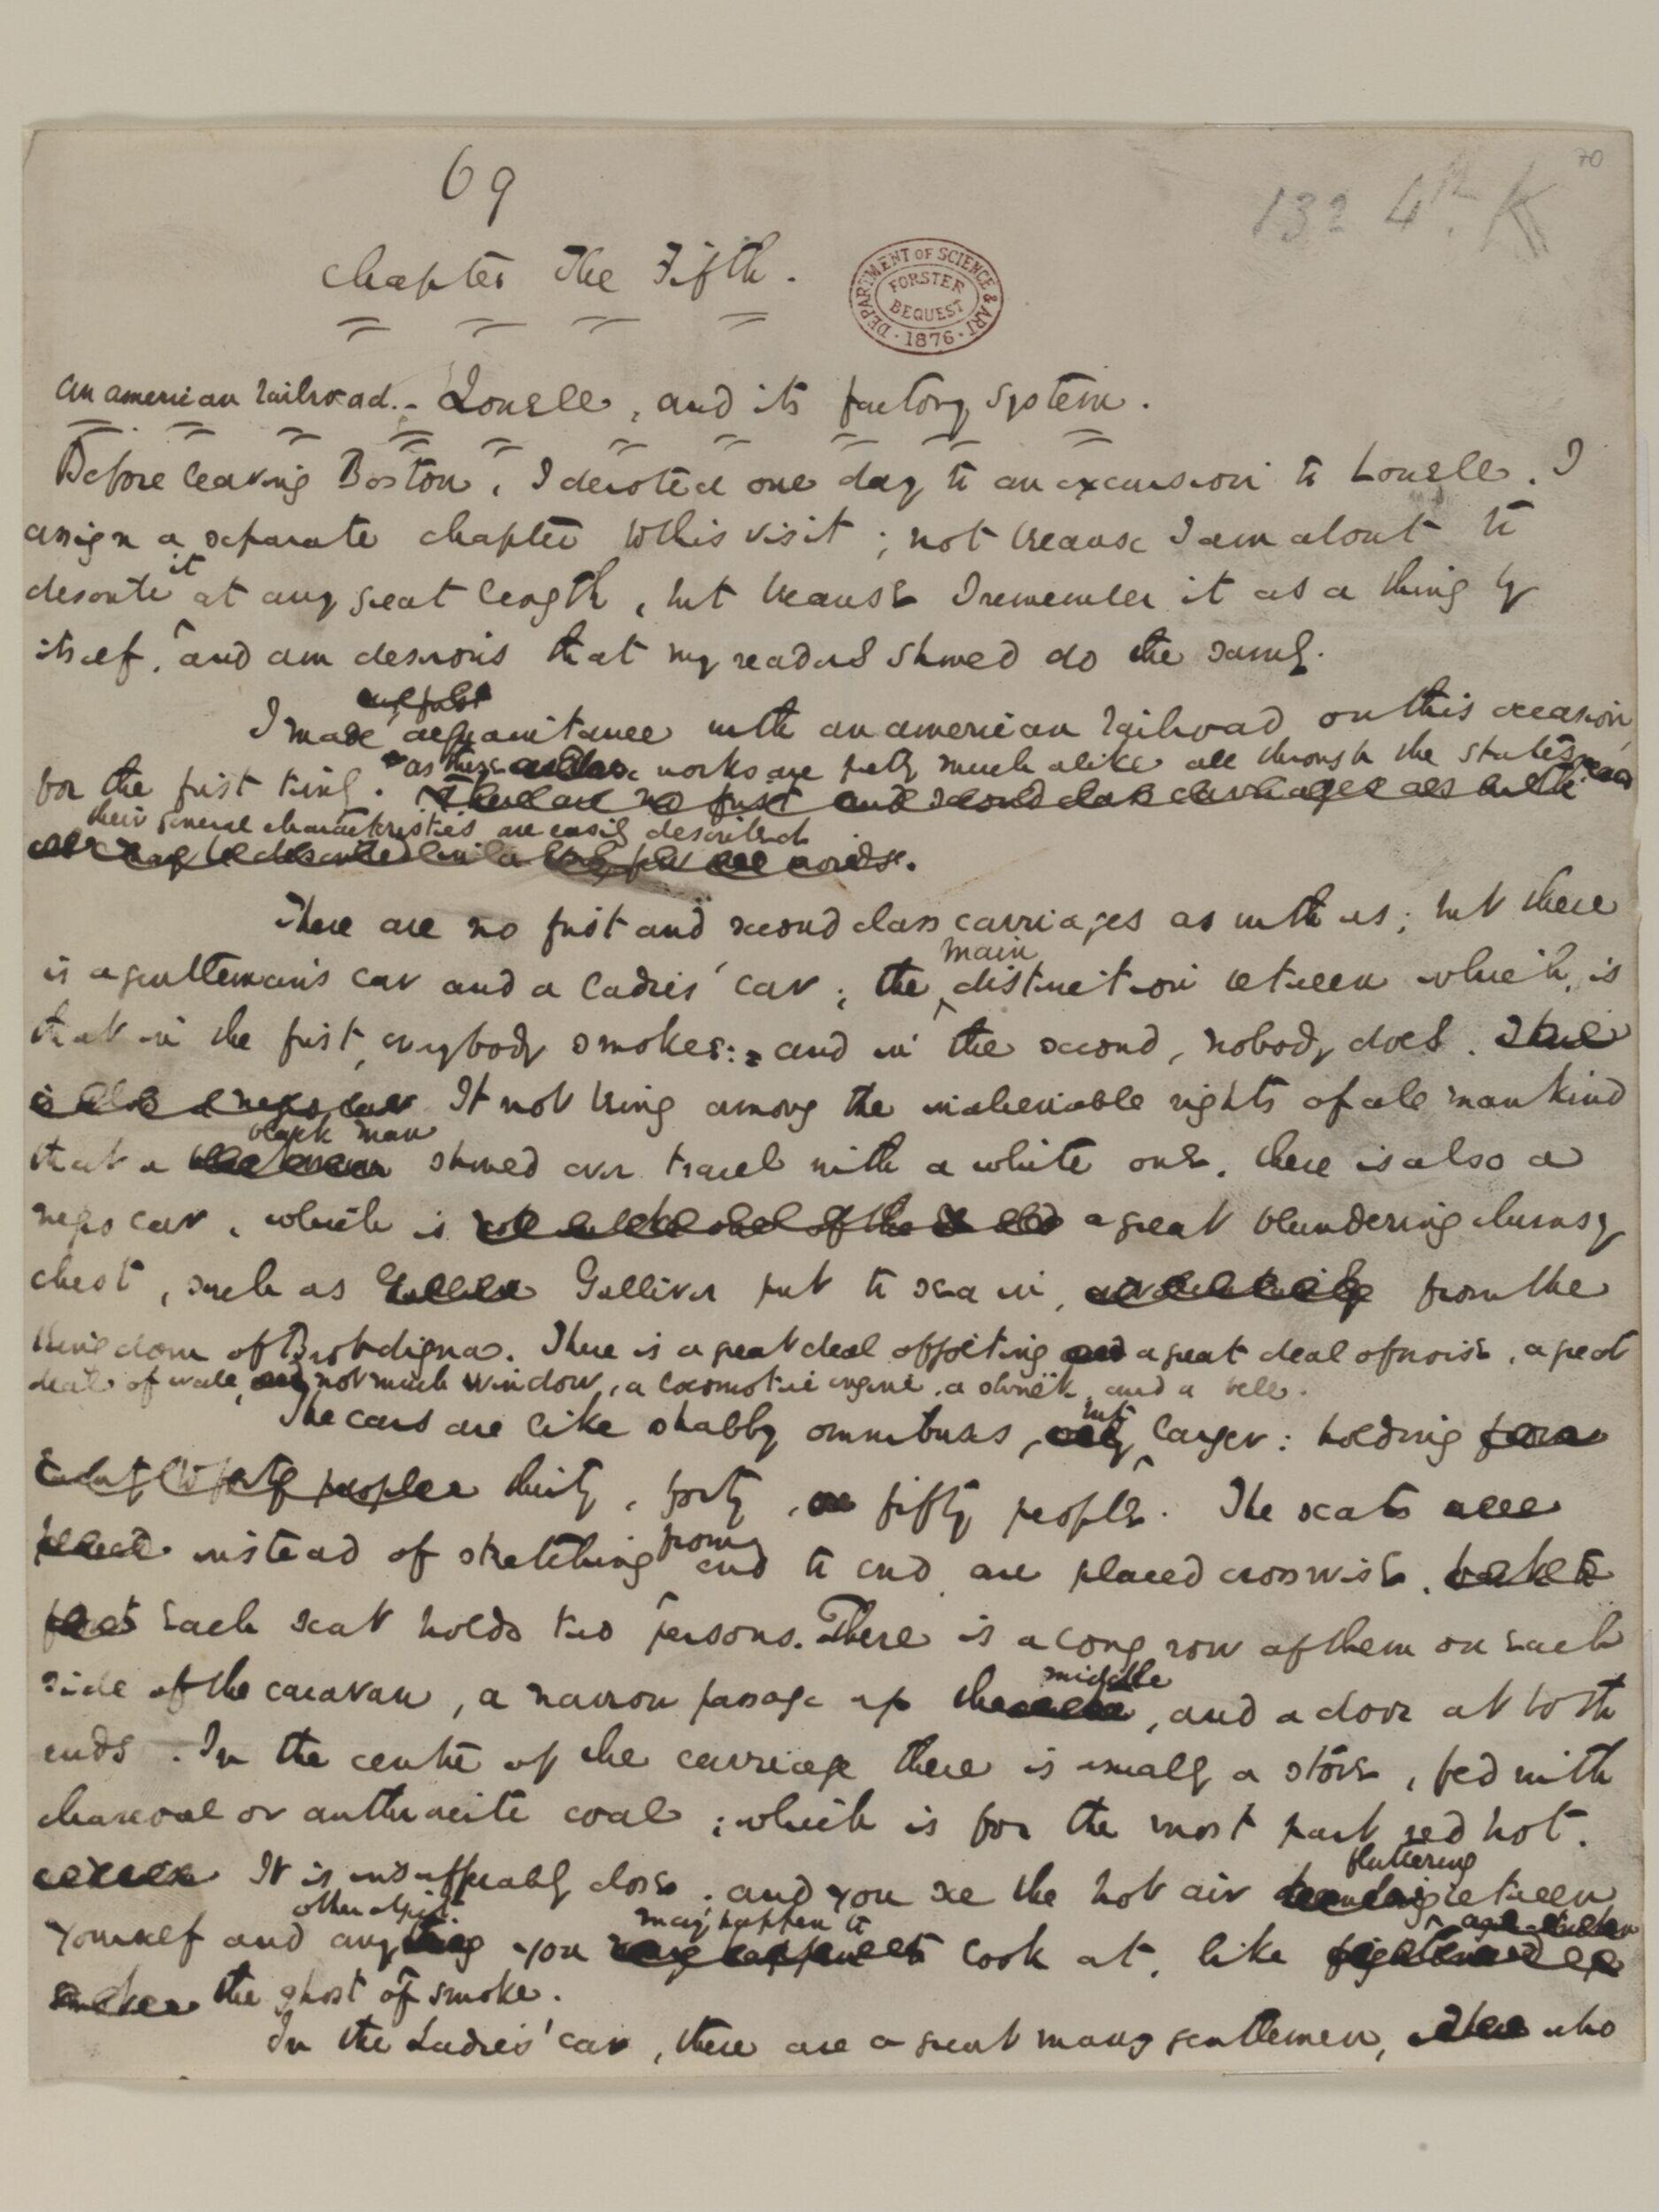 70
69
132 4th. K
Chapter The Fifth.
DEPARTMENT OF SCIENCE & ART · 1876 ·
FORSTER BEQUEST
An american railroad. - Lowell, and its factory system.
Before leaving Boston, I devoted one day to an excursion to Lowell. I
assign a separate chapter to this visit; not because I am about to
describe it at any great length, but because I remember it as a thing by
itself, and am desirous that my readers should do the same.
I made acquaintance with an american railroad on this occasion,
for the first time. as these works are pretty much alike all through the States,
There are no first and second class carriages as with
their general characteristics are easily described
may be described in a words.
There are no first and second class carriages as with us; but there
is a gentleman's car and a ladies' car; the main distinction between which, is
that in the first, everybody smokes: and in the second, nobody does. There
is also a negro car It not being among the inalienable rights of all mankind
that a black man should ever travel with a white one, there is also a
negro car, which is a great blundering clumsy
chest, such as Gulliver put to sea in, from the
kingdom of Brobdignag. There is a great deal of jolting and a great deal of noise, a great
deal of wall, and not much window, a locomotive engine, a shriek, and a bell.
The cars are like shabby omnibuses, but larger: holding
forty people thirty, forty, or fifty people. The seats
placed instead of stretching from end to end, are placed crosswise.
Each seat holds two persons. There is a long row of them on each
side of the caravan, a narrow passage up the middle, and a door at both
ends. In the centre of the carriage there is usually a stove, fed with
charcoal or anthracite coal; which is for the most part red hot.
It is insufferably close; and you see the hot air fluttering between
yourself and any other object you may happen to look at, like
smoke the ghost of smoke.
In the Ladies' car, there are a great many gentlemen, who